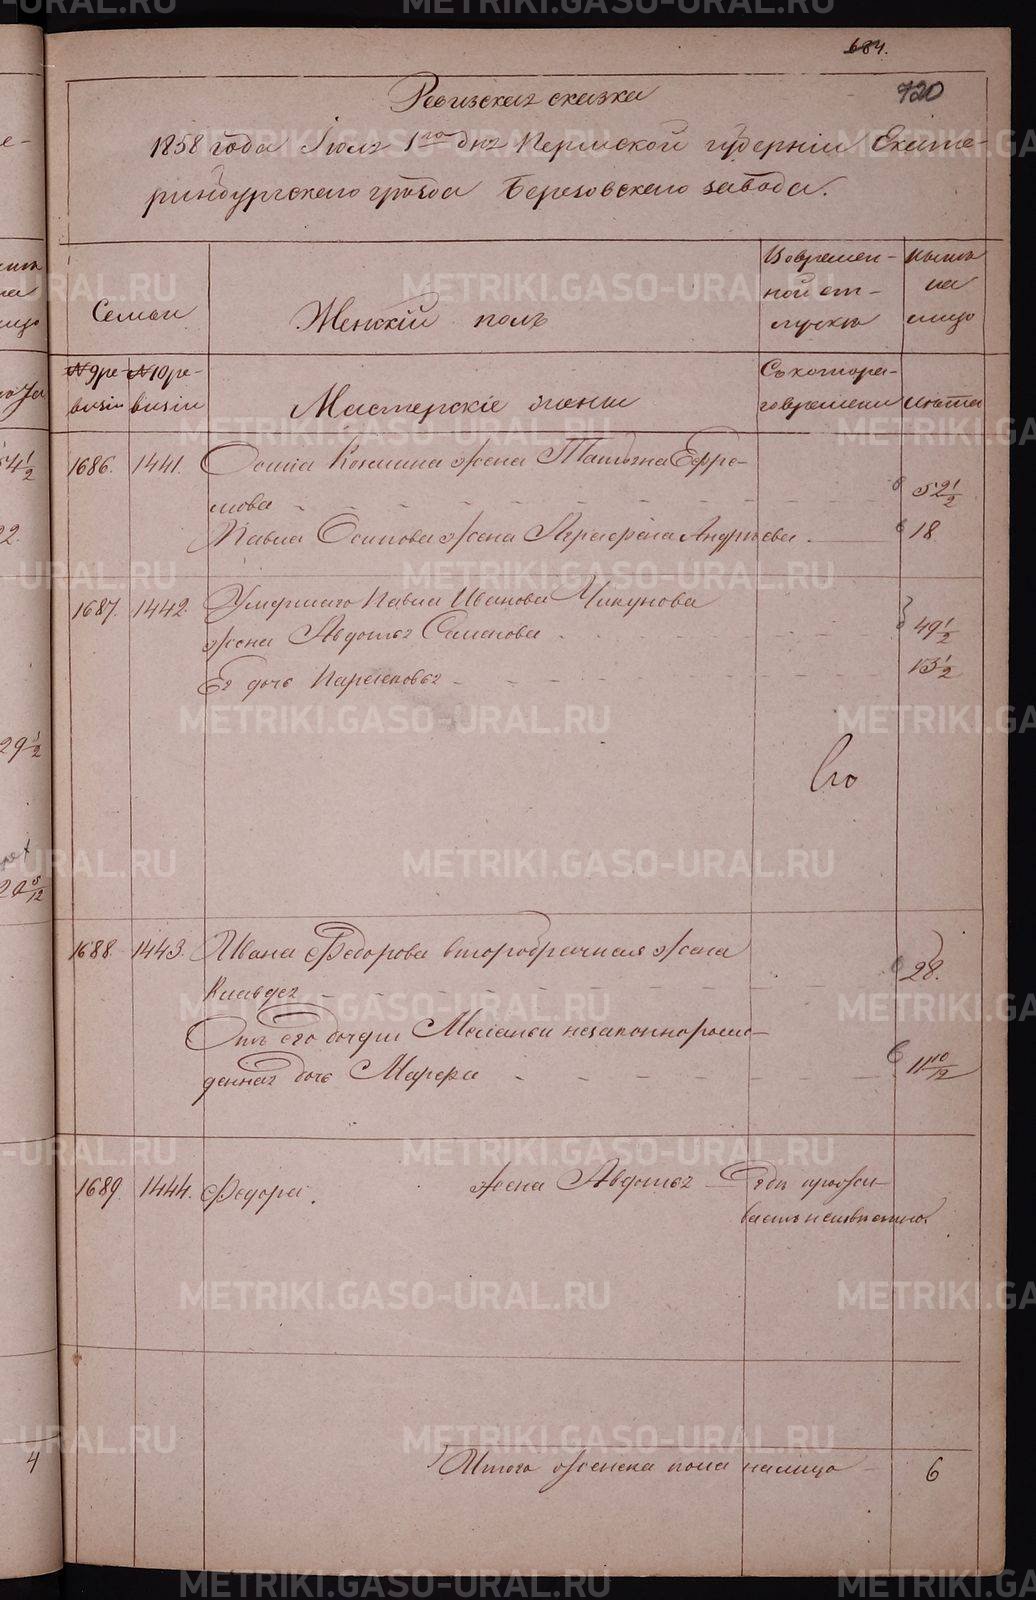 684.
720
Ревизская сказка
1858 года Іюля 1го дня Пермской губерніи Екате-
ринбургского уезда Березовского завода.
Семьи
Женскій полъ
Вовремен-
ной от-
лучке
Ныне
на
лицо
№ 9 ре-
визіи
№ 10 ре-
визіи
Мастерскіе жены
Съ котора-
го времени
Лета
1686. 1441. Осипа Кокшина жена Татьяна Ефре-
мова 52 1/2
Павла Осипова жена Аграфена Андреева. 18
1687. 1442. Умершаго Павла Иванова Чикунова
жена Авдотья Савастьянова 49 1/2
Ея дочь Парасковья 13 1/2
1688. 1443. Ивана Федорова второбрачная жена
Клавдея 28.
Отъ его дочери Меланьи незаконнорож-
денная дочь Марфа 11 10/12
1689. 1444. Федора. жена Авдотья Где прожи-
ваетъ неизвестно.
Итого женска пола налицо 6
29 1/2
22.
4
METRIKI.GASO-URAL.RU